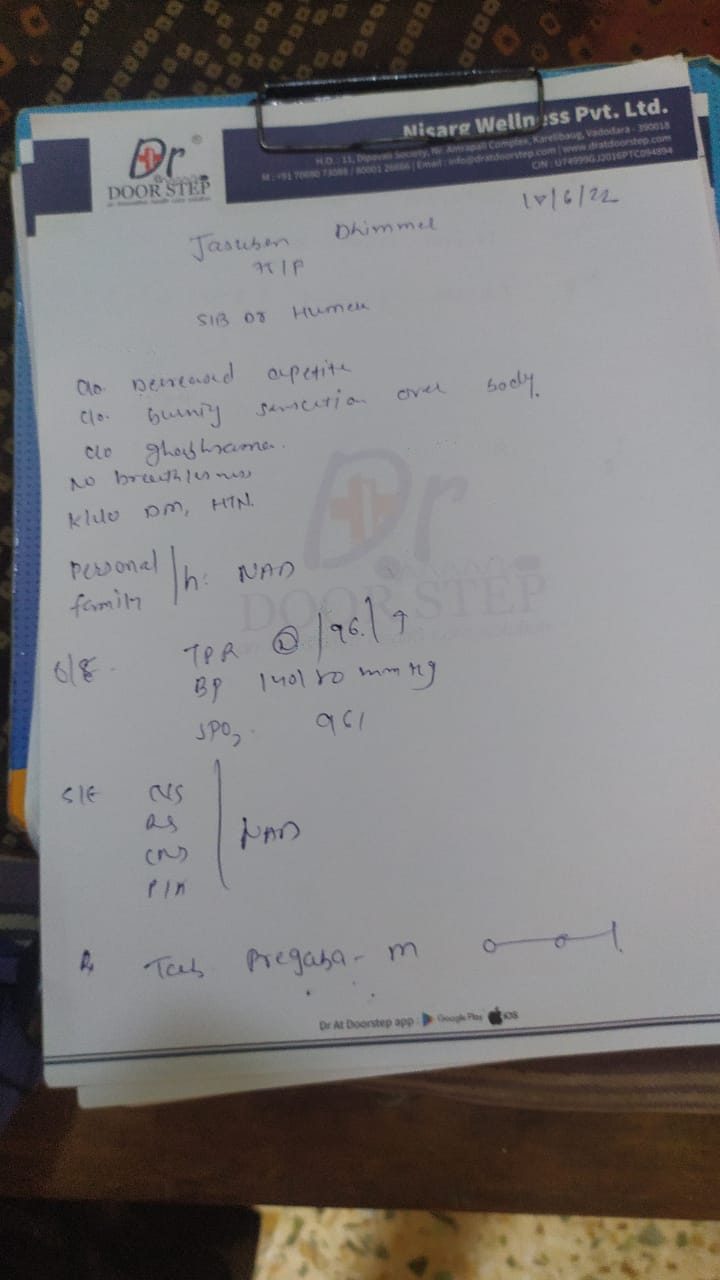 Nisarg Wellness Pvt. Ltd.
H.O. : 11, Dipavali Society, Nr. Amrapali Complex, Karelibaug, Vadodara - 390018
Email : info@dratdoorstep.com | www.dratdoorstep.com
CIN : U74999GJ2016PTC094894
Dr
DOOR STEP
/6/22
Jasuben Dhimmel
S/B Dr Humera
c/o Decreased apetite
c/o. burning sensation over body.
c/o ghabhrama.
No breathlessness
K/c/o DM, HTN.
Personal
family /h: NAD
O/E
TPR N /96./↑
BP 140/80 mm Hg
SPO2. 96%
S/E CVS
RS
CNS
P/A
NAD
Rx Tab. Pregaba-M 0—0—1
Dr At Doorstep app : Google Play iOS
Dr
DOOR STEP